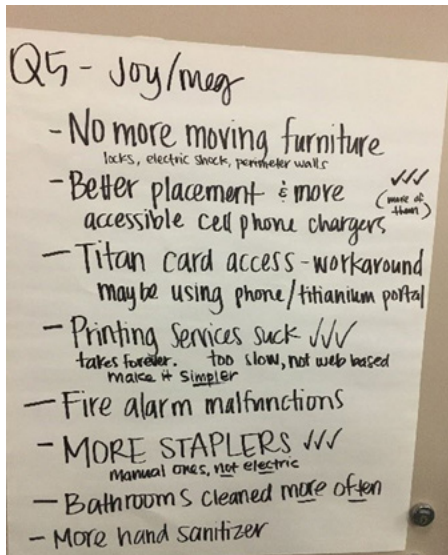 Q5 - Joy/meg
- No more moving furniture
locks, electric shock, perimeter walls
- Better placement & more ✓✓✓
accessible cell phone chargers (more of them)
- Titan card access - workaround
maybe using phone/titianium portal
- Printing Services suck ✓✓✓
takes forever. too slow, not web based
make it simpler
- Fire alarm malfunctions
- MORE STAPLERS ✓✓✓
manual ones, not electric
- Bathrooms cleaned more often
- More hand sanitizer